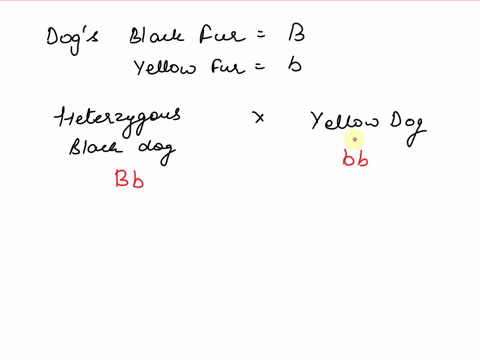 Dog's Black Fur = B
Yellow Fur = b
Heterzygous x Yellow Dog
Black dog bb
Bb